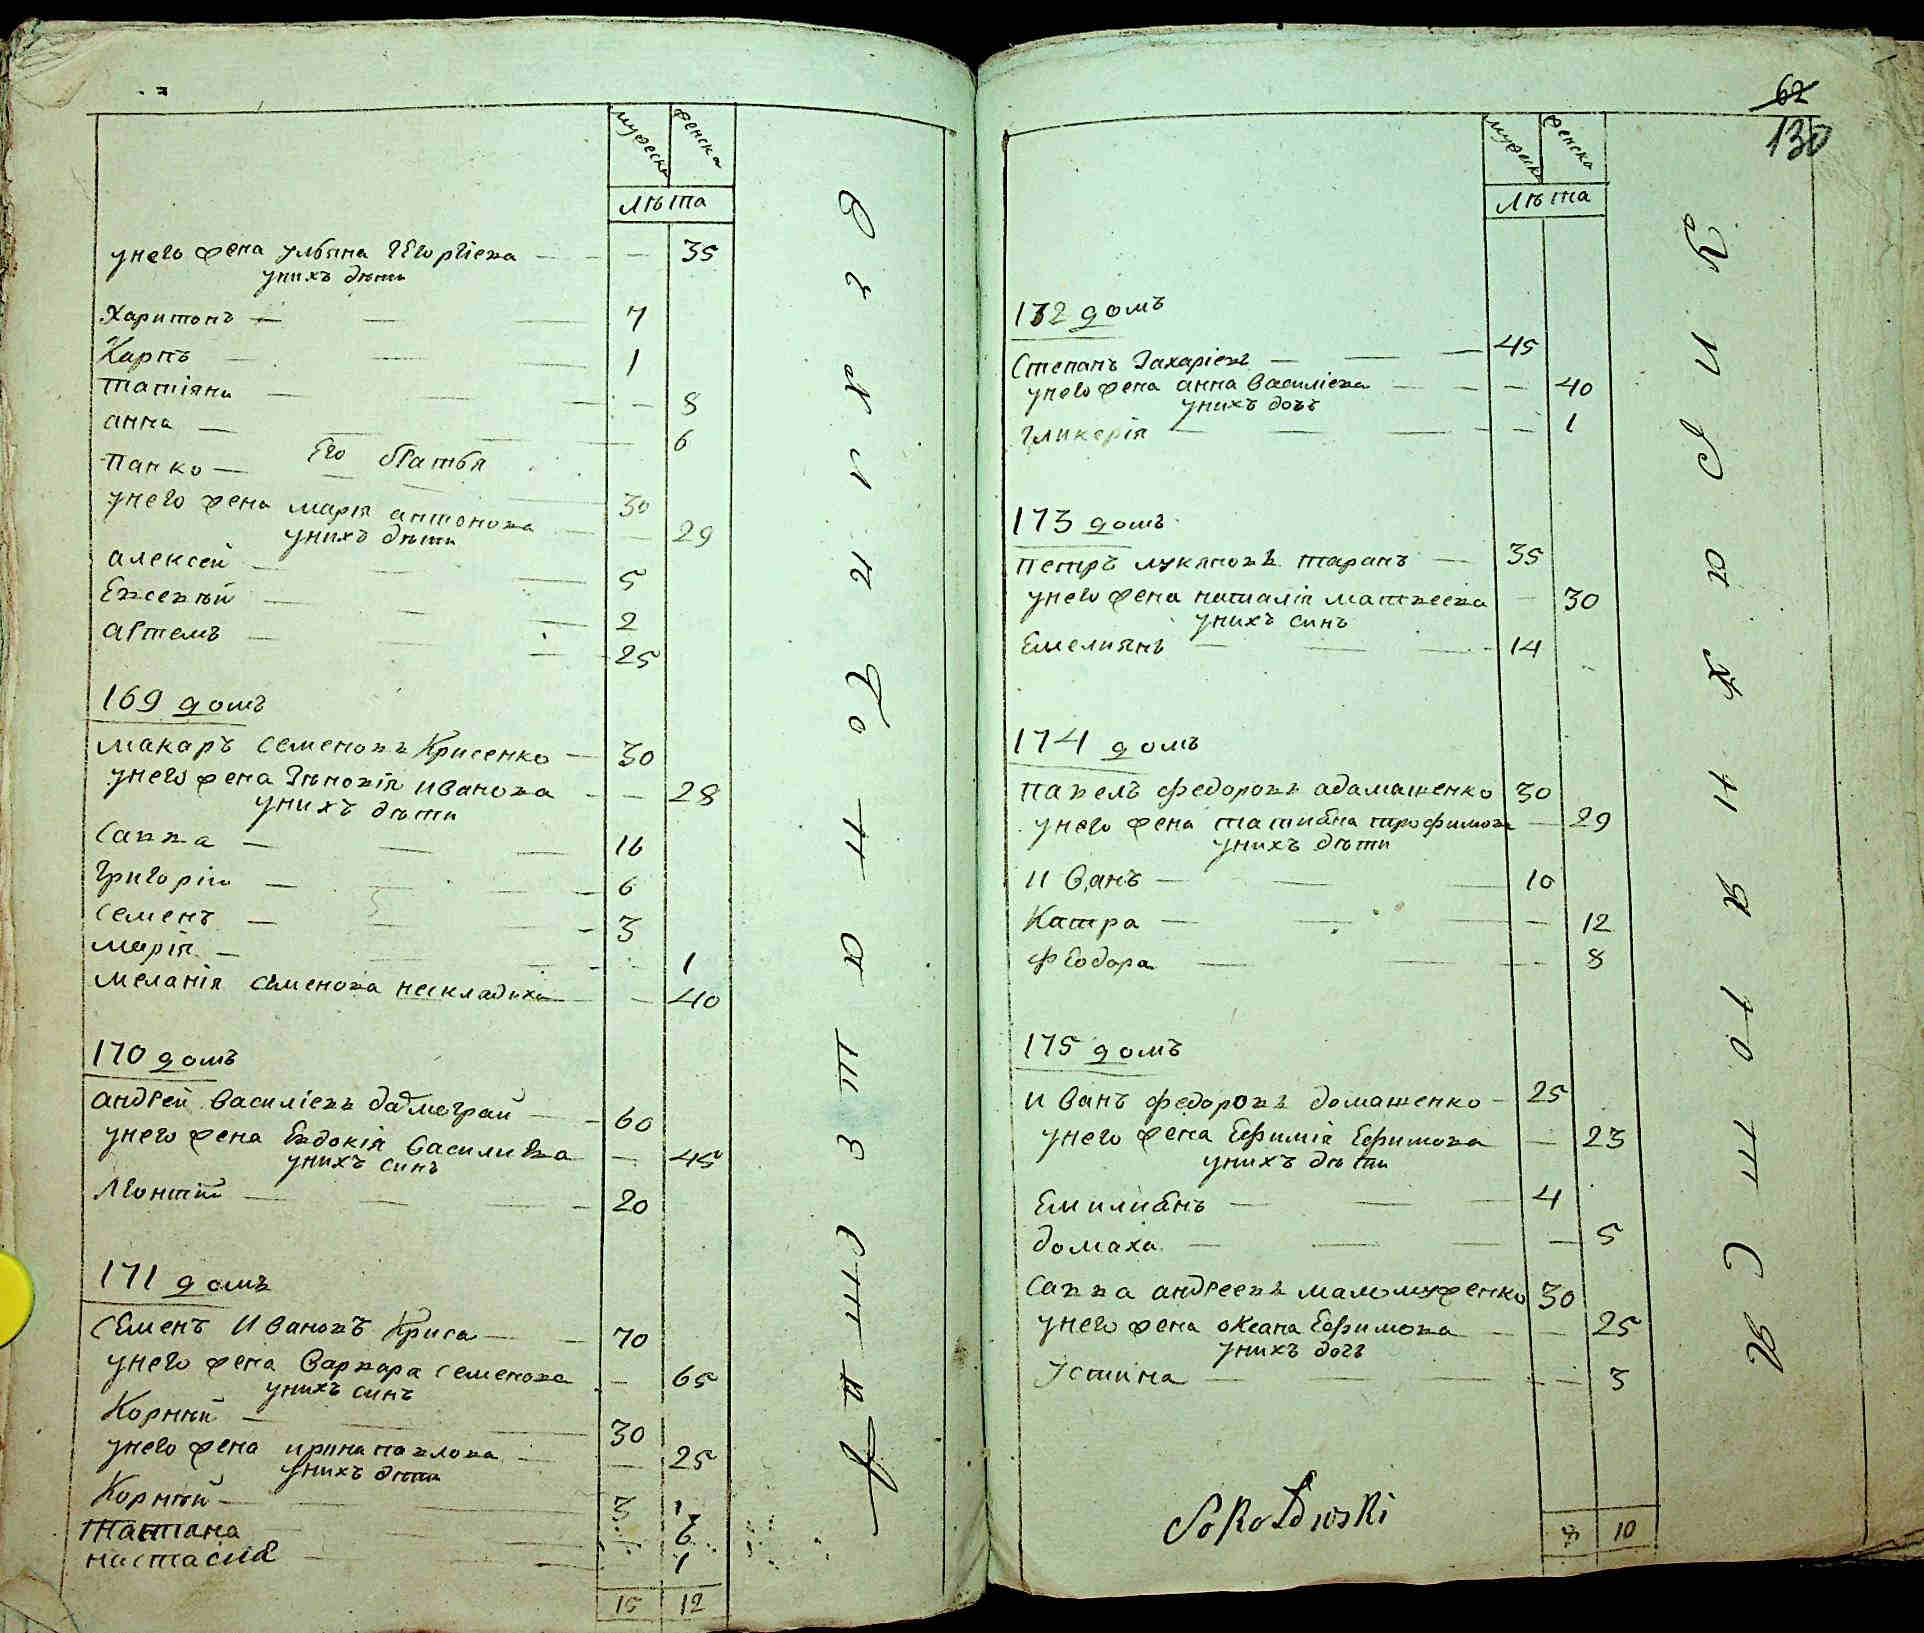 мужеска женска
лѣта
унего жена ульяна Георгіева 35
унихъ дѣти
Харитонъ 7
Карпъ 1
татіяна 8
анна 6
Его братья
Панко 30
унего жена марія антонова 29
унихъ дѣти
алексей 5
Евсевій 2
артемъ 25
169 домъ
макаръ семеновъ Крисенко 30
унего жена Зѣновія Иванова 28
унихъ дѣти
Савва 16
Григорій 6
семенъ 3
марія 1
меланія семенова 40
170 домъ
андрей Василіевъ 60
унего жена Евдокія Василиева 45
унихъ синъ
Леонтій 20
171 домъ
семенъ Ивановъ Криса 70
унего жена Варвара семенова 65
унихъ синъ
Корній 30
унего жена ирина павлова 25
унихъ дѣти
Корній 3
татіана 6
настасия 1
15 12
62
130
мужеска женска
лѣта
172 домъ
Степанъ Захаріевъ 45
унего жена анна Василіева 40
унихъ дочь
гликерія 1
173 домъ
петръ лукяновъ таранъ 35
унего жена наталія матвеева 30
унихъ синъ
Емелиянъ 14
174 домъ
павелъ федоровъ адамашенко 30
унего жена татияна трофимова 29
унихъ дѣти
Иванъ 10
Катра 12
феодора 8
175 домъ
Иванъ федоровъ домашенко 25
унего жена Ефимія Ефимова 23
унихъ дѣти
Емилиянъ 4
домаха 5
Савва андреевъ 30
унего жена оксана Ефимова 25
унихъ дочь
Устина 3
Sokołowski
8 10